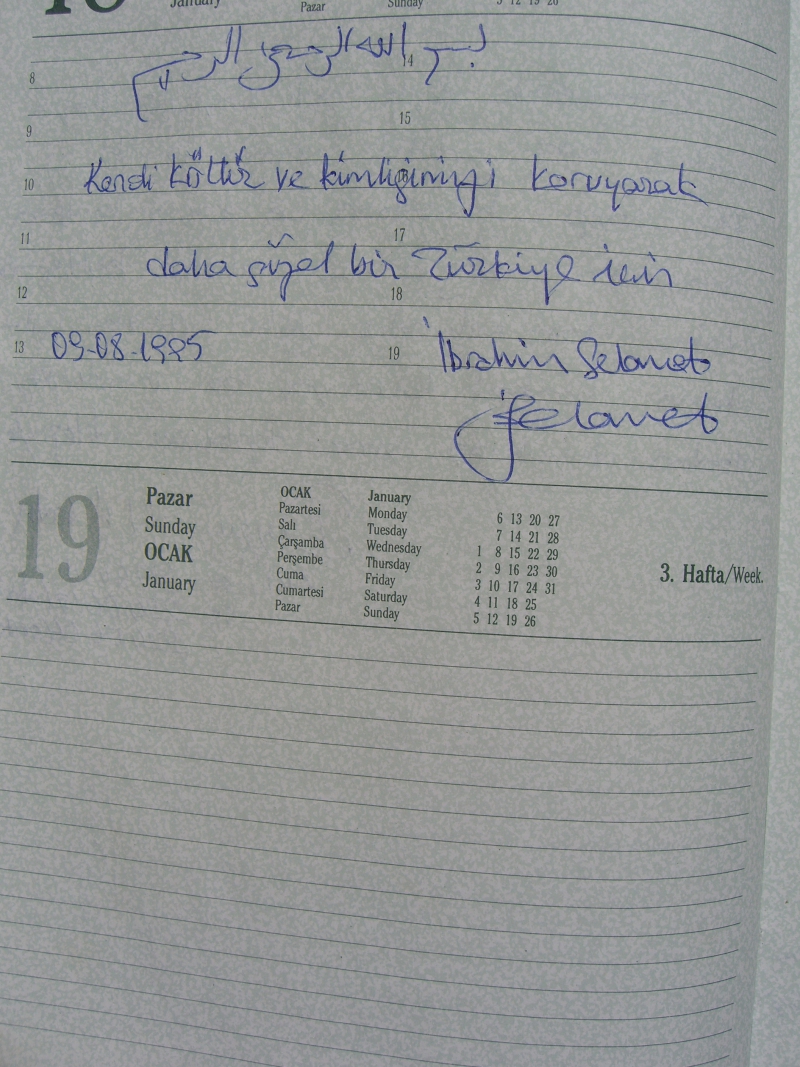 January Pazar Sunday 5 12 19 26
بسم الله الرحمن الرحيم
8 14
9 15
10 Kendi költür ve kimliğiningi koruyarak
11 17
daha güzel bir Türkiye için
12 18
13 09-08-1995 19 İbrahim Selamet
Selamet
19
Pazar
Sunday
OCAK
January
OCAK January
Pazartesi Monday 6 13 20 27
Salı Tuesday 7 14 21 28
Çarşamba Wednesday 1 8 15 22 29
Perşembe Thursday 2 9 16 23 30
Cuma Friday 3 10 17 24 31
Cumartesi Saturday 4 11 18 25
Pazar Sunday 5 12 19 26
3. Hafta/Week.